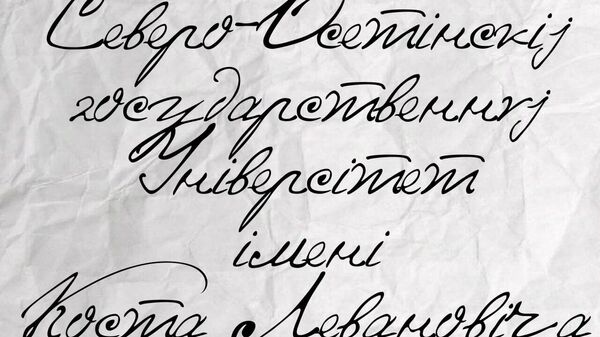 Северо-Осетінскіј
государственныј
Універсітет
імені
Коста Левановіча